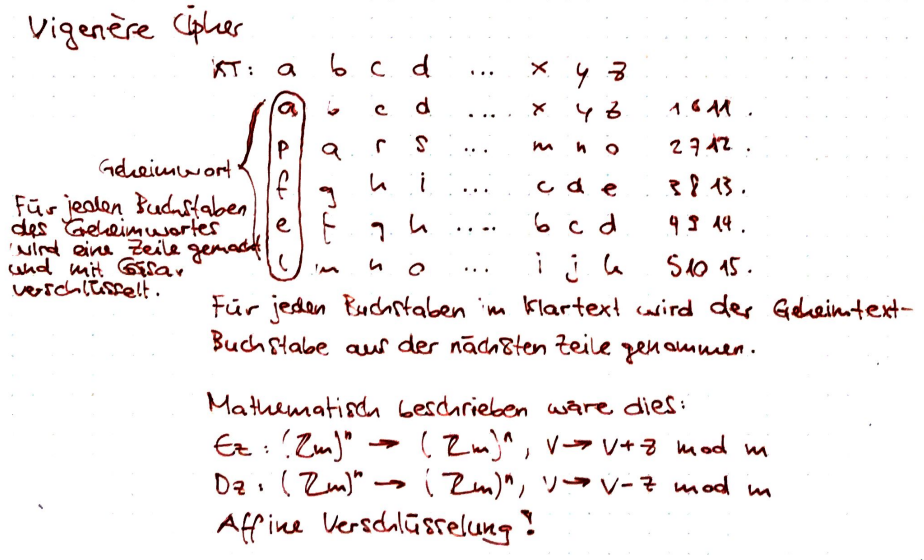 Vigenère Cipher
KT: a b c d ... x y z
a b c d .... x y z 1 6 11 .
p q r s ... m n o 2 7 12 .
Geheimwort
f g h i ... c d e 3 8 13 .
Für jeden Buchstaben
des Geheimwortes
e f g h .... b c d 4 9 14 .
wird eine Zeile gemacht
und mit Cäsar
l m n o ... i j k 5 10 15 .
verschlüsselt.
Für jeden Buchstaben im Klartext wird der Geheimtext-
Buchstabe aus der nächsten Zeile genommen.
Mathematisch beschrieben wäre dies:
Ez : (Zm)ⁿ → (Zm)ⁿ, v → v+z mod m
Dz : (Zm)ⁿ → (Zm)ⁿ, v → v-z mod m
Affine Verschlüsselung!